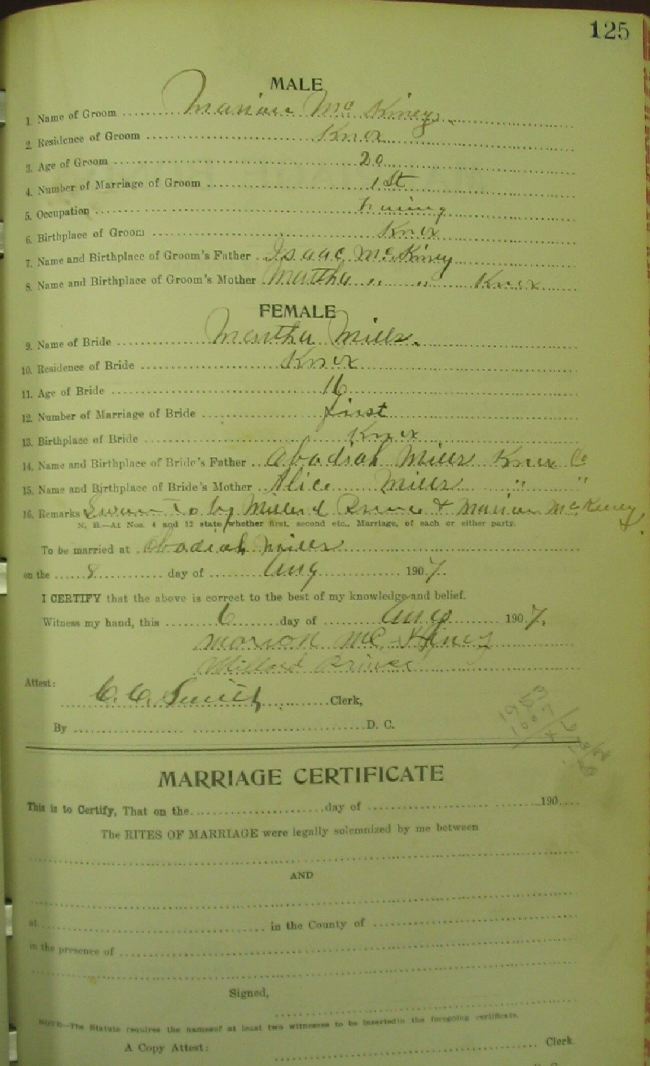 125
MALE
1. Name of Groom Marion Mc Kiney
2. Residence of Groom Knox
3. Age of Groom 20
4. Number of Marriage of Groom 1st
5. Occupation
6. Birthplace of Groom Knox
7. Name and Birthplace of Groom's Father Isaac McKiney
8. Name and Birthplace of Groom's Mother Martha " " Knox
FEMALE
9. Name of Bride Martha Mills.
10. Residence of Bride Knox
11. Age of Bride 16
12. Number of Marriage of Bride first
13. Birthplace of Bride Knox
14. Name and Birthplace of Bride's Father Obadiah Mills Knox Co
15. Name and Birthplace of Bride's Mother Alice Mills " "
16. Remarks Sworn to by Millard & Marion McKiney
N. B.—At Nos. 4 and 12 state whether first, second etc., Marriage, of each or either party.
To be married at Obadiah Mills
on the 8 day of Aug 1907.
I CERTIFY that the above is correct to the best of my knowledge and belief.
Witness my hand, this 6 day of Aug 1907.
Marion Mc Kiney
Millard
Attest:
C. C. Smith Clerk,
By D. C.
MARRIAGE CERTIFICATE
This is to Certify, That on the day of 190
The RITES OF MARRIAGE were legally solemnized by me between
AND
at in the County of
in the presence of
Signed,
NOTE—The Statute requires the names of at least two witnesses to be inserted in the foregoing certificate.
A Copy Attest: Clerk